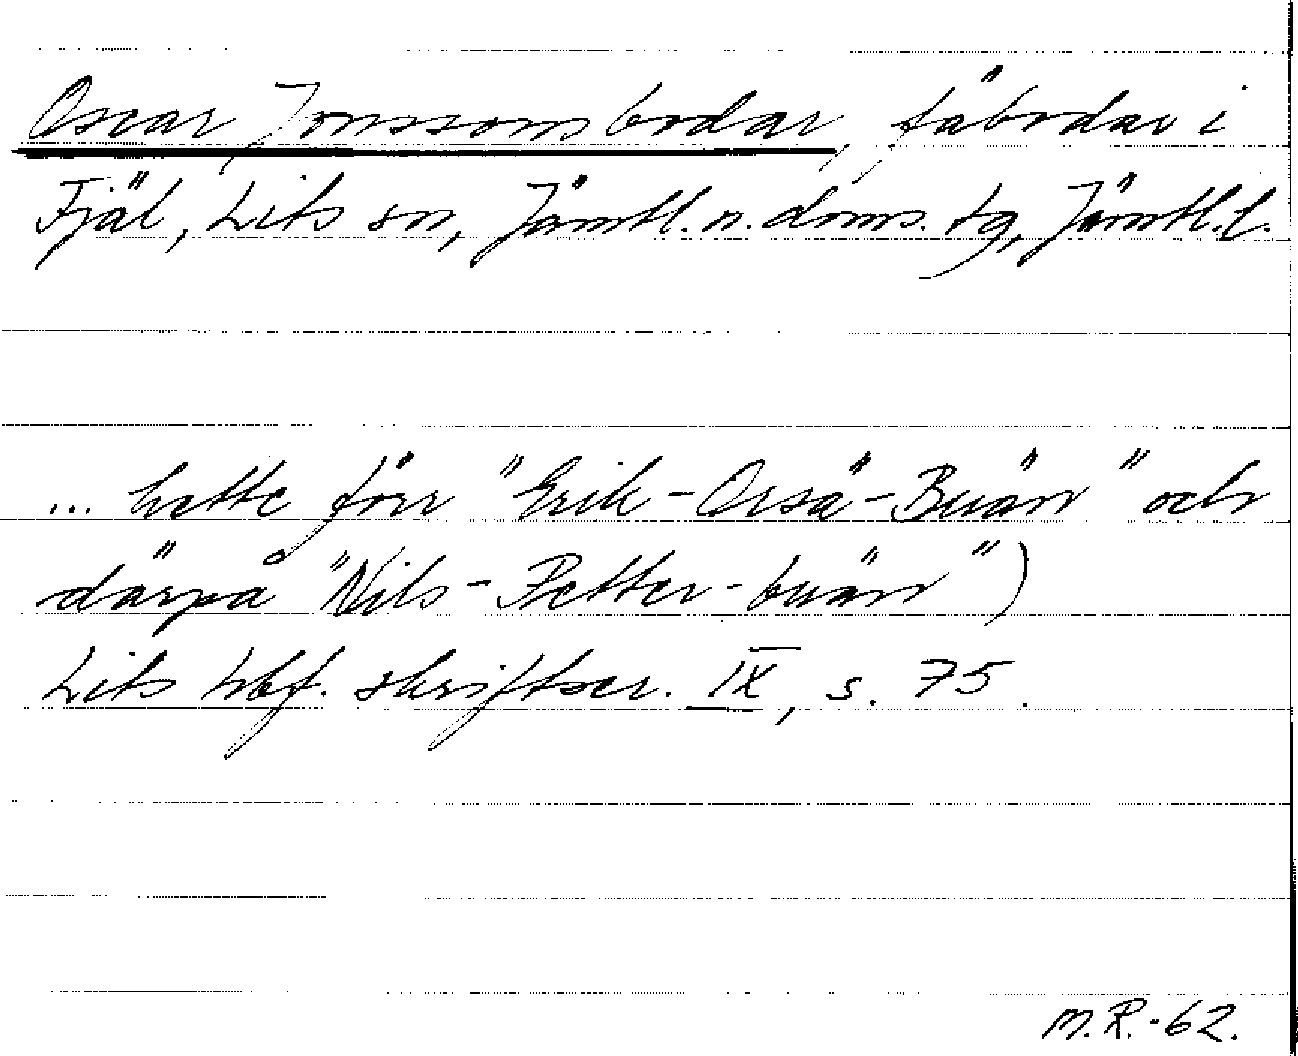 Oscar Jonssons bodar, fäbodar i
Fjäl, Lits sn, Jämtl. n. doms. tg, Jämtl. l.
... hette förr "Erik-Orsä-Buän" och
därpå "Nils-Petter-buän")
Lits hbf. skriftser. IX, s. 75.
M.R.-62.